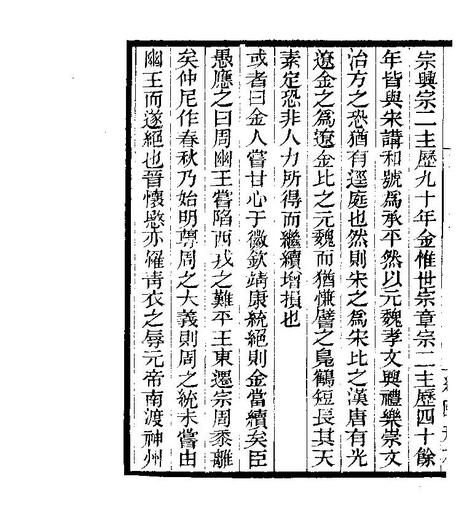 宗興宗二主歷九十年金惟世宗章宗二主歷四十餘
年皆與宋講和號爲承平然以元魏孝文興禮樂崇文
治方之恐猶有逕庭也然則宋之爲宋比之漢唐有光
遼金之爲遼金比之元魏而猶慊譬之鳧鶴短長其天
素定恐非人力所得而繼續增損也
或者曰金人嘗甘心于徽欽靖康統絕則金當續矣臣
愚應之曰周幽王嘗陷西戎之難平王東遷宗周黍離
矣仲尼作春秋乃始明尊周之大義則周之統未嘗由
幽王而遂絕也晉懷愍亦罹靑衣之辱元帝南渡神州